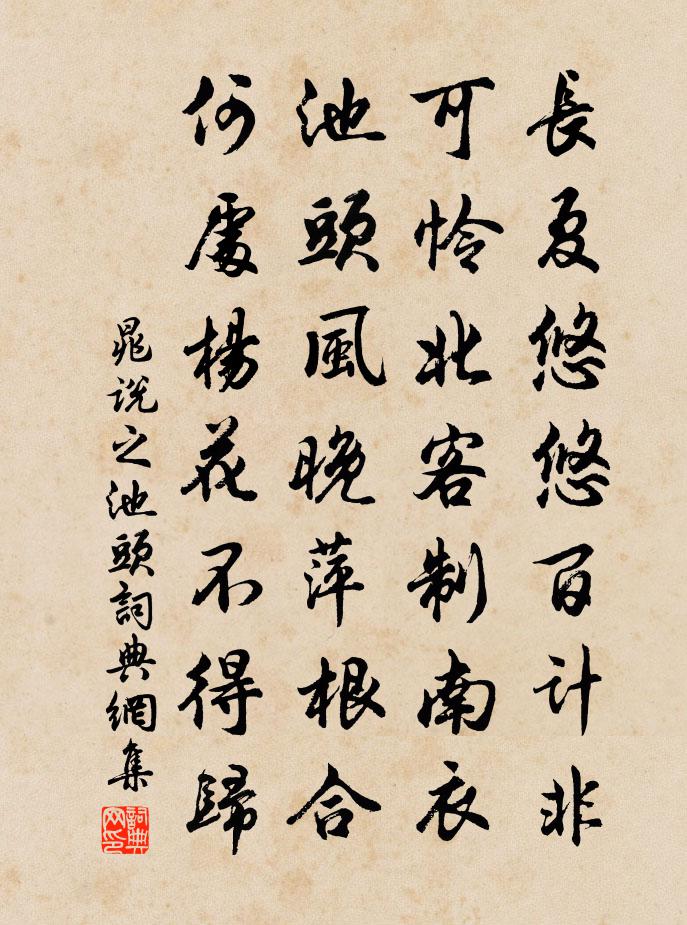 長夏悠悠百計非
可怜北客制南衣
池頭風晚萍根合
何處楊花不得歸
晁説之池頭詞典網集
詞典网印